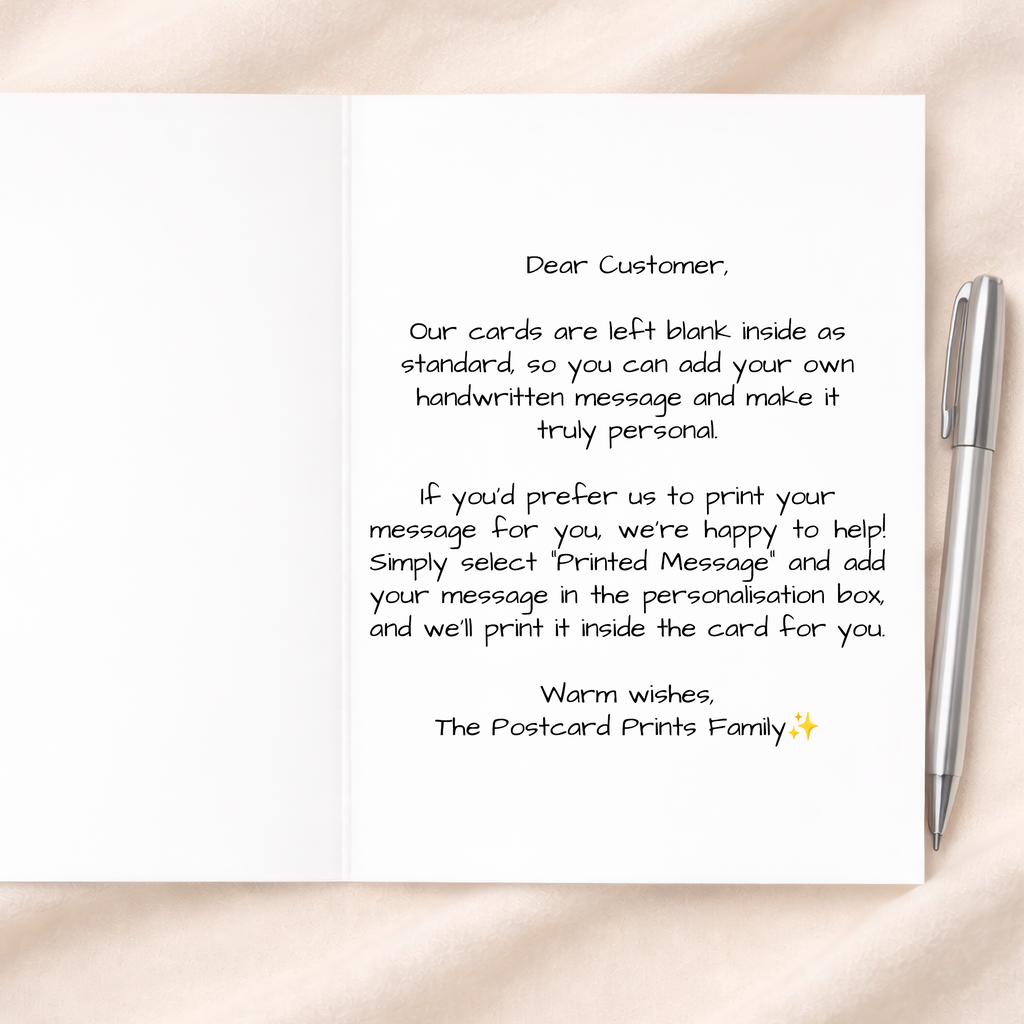 Dear Customer,
Our cards are left blank inside as
standard, so you can add your own
handwritten message and make it
truly personal.
If you'd prefer us to print your
message for you, we're happy to help!
Simply select "Printed Message" and add
your message in the personalisation box,
and we'll print it inside the card for you.
Warm wishes,
The Postcard Prints Family✨